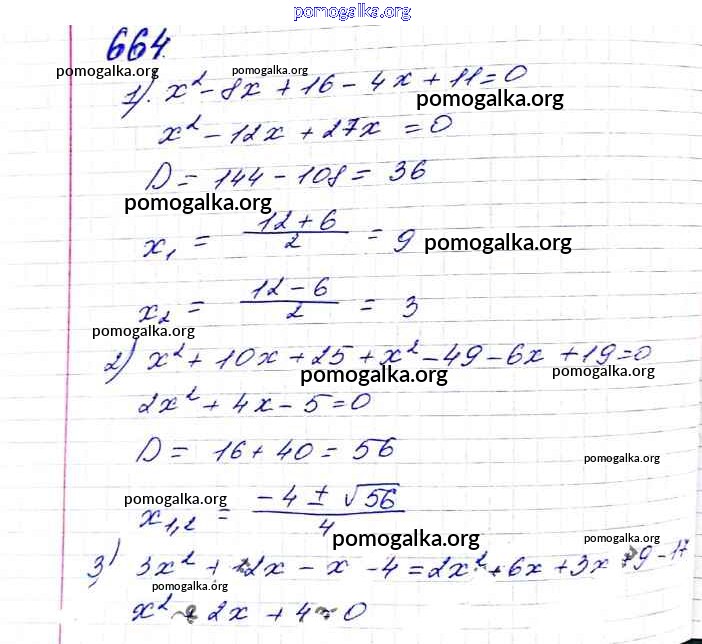 pomogalka.org
664.
pomogalka.org pomogalka.org
1). x² - 8x + 16 - 4x + 11 = 0
pomogalka.org
x² - 12x + 27x = 0
D = 144 - 108 = 36
pomogalka.org
x₁ = (12 + 6)/2 = 9 pomogalka.org
x₂ = (12 - 6)/2 = 3
pomogalka.org
2) x² + 10x + 25 + x² - 49 - 6x + 19 = 0
pomogalka.org pomogalka.org
2x² + 4x - 5 = 0
D = 16 + 40 = 56
pomogalka.org
pomogalka.org
x₁,₂ = (-4 ± √56)/4
pomogalka.org pomogalka.org
3) 3x² + 12x - x - 4 = 2x² + 6x + 3x + 9 - 17
pomogalka.org
x² + 2x + 4 = 0